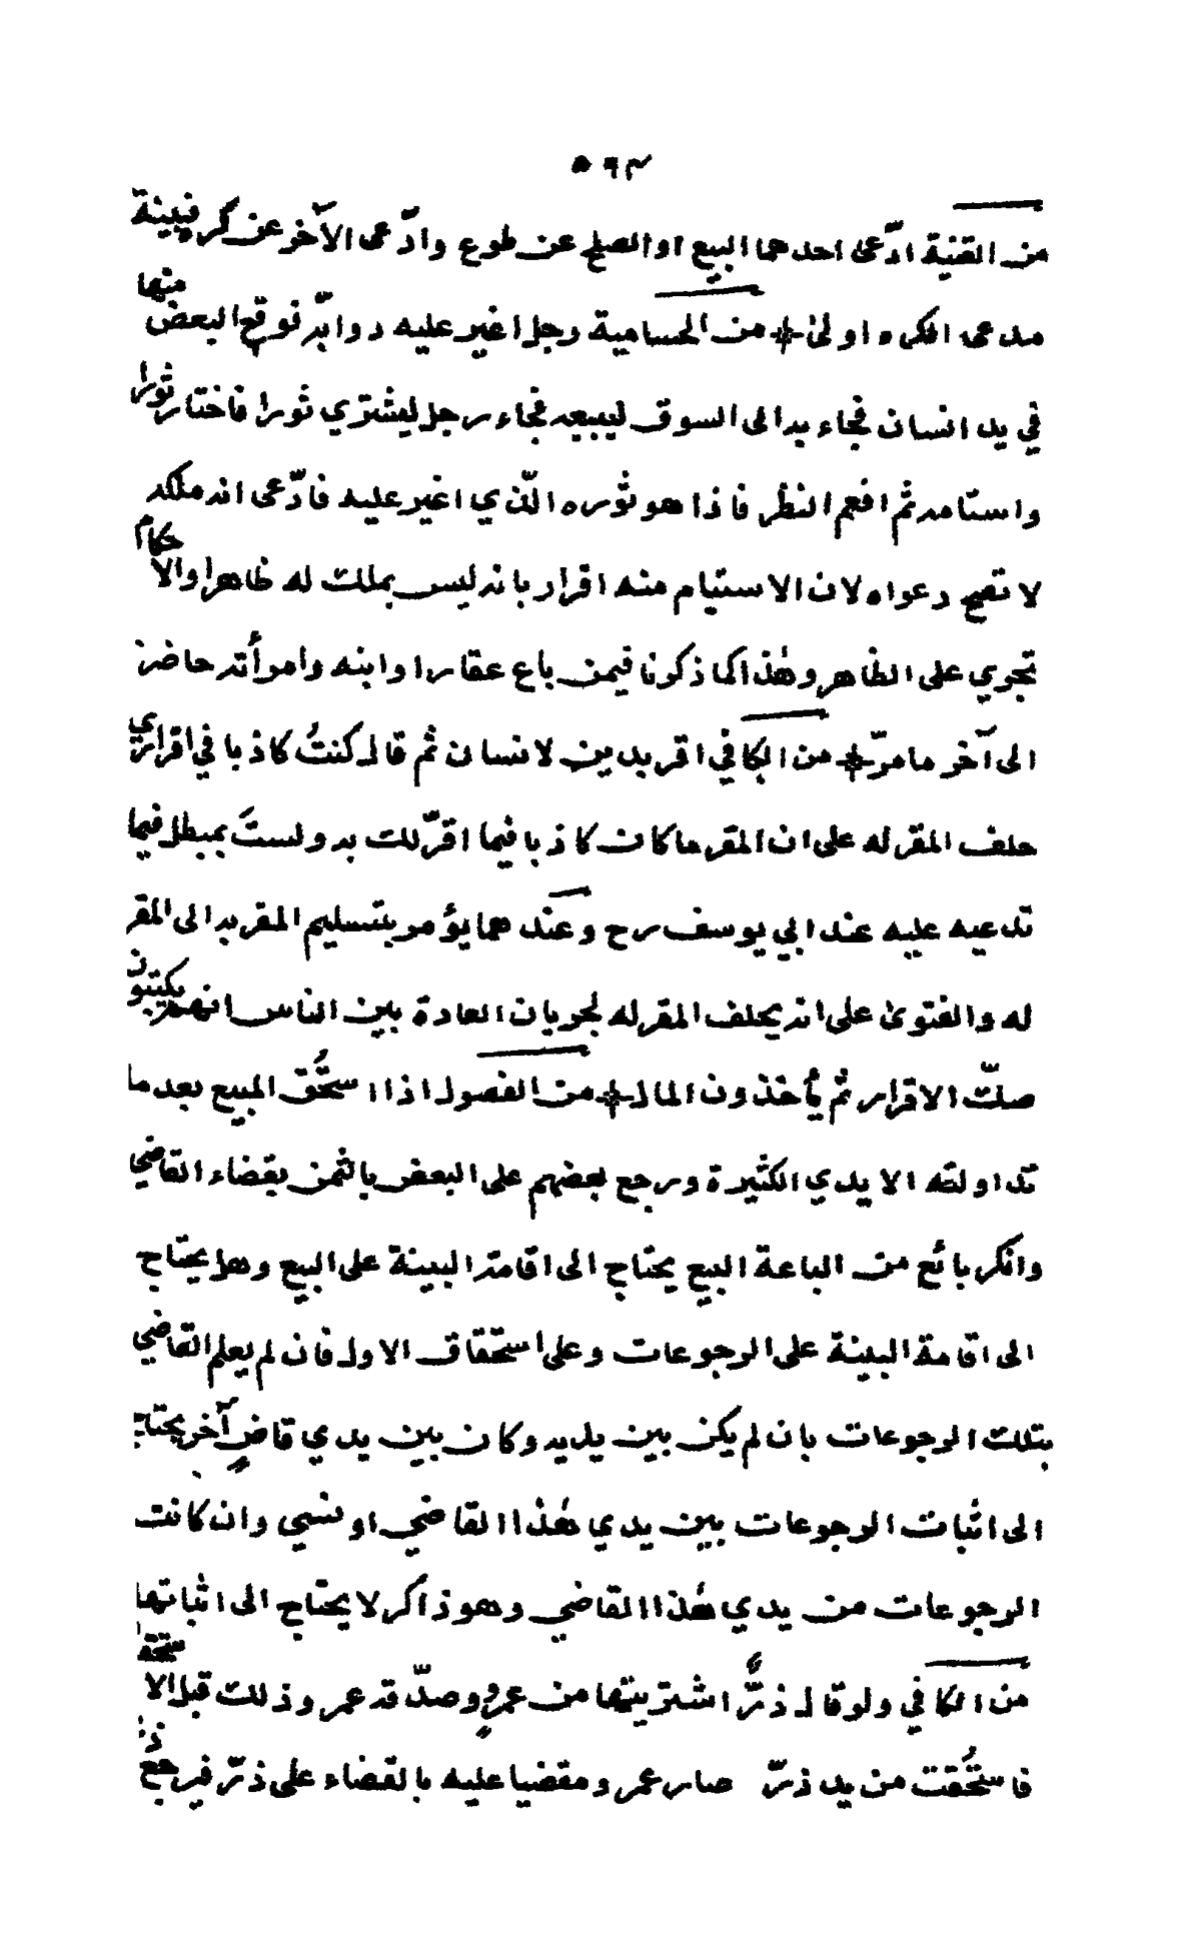 ٥٦٣
من القنية ادّعى احدهما البيع او الصلح عن طوع وادّعى الآخر عن كره فبينة
مدعى الكره اولى + من الحسامية رجل اغير عليه دوابّه فوقع البعض منها
في يد انسان فجاء به الى السوق ليبيعه فجاء رجل ليشتري ثورا فاختار ثورا
واستامه ثم انعم النظر فاذا هو ثوره الّذي اغير عليه فادّعى انه ملكه
لا تصح دعواه لان الاستيام منه اقرار بانه ليس بملك له ظاهرا والاحكام
تجري على الظاهر وهذا كما ذكرنا فيمن باع عقارا وابنه وامرأته حاضرة
الى آخر ما مرّ + من الكافي اقر بدين لانسان ثم قال كنتُ كاذبا في اقراري
حلف المقر له على ان المقر ما كان كاذبا فيما اقرّ لك به ولستَ بمبطل فيما
تدعيه عليه عند ابي يوسف رح وعندهما يؤمر بتسليم المقر به الى المقر
له والفتوى على انه يحلف المقر له لجريان العادة بين الناس انهم يكتبون
صكّ الاقرار ثم يأخذون المال + من الفصول اذا استُحقّ المبيع بعد ما
تداولته الايدي الكثيرة ورجع بعضهم على البعض بالثمن بقضاء القاضي
وانكر بائع من الباعة البيع يحتاج الى اقامة البينة على البيع وهل يحتاج
الى اقامة البينة على الرجوعات وعلى استحقاق الاول فان لم يعلم القاضي
بتلك الرجوعات بان لم يكن بين يديه وكان بين يدي قاضٍ آخر يحتاج
الى اثبات الرجوعات بين يدي هذا القاضي او نسي وان كانت
الرجوعات من يدي هذا القاضي وهو ذاكر لا يحتاج الى اثباتها
من الكافي ولو قال ذرٌّ اشتريتها من عمرٍو وصدّقه عمر وذلك قبل الاستحقاق
فاستُحقت من يد ذرّ صار عمرو مقضيا عليه بالقضاء على ذرّ فيرجع